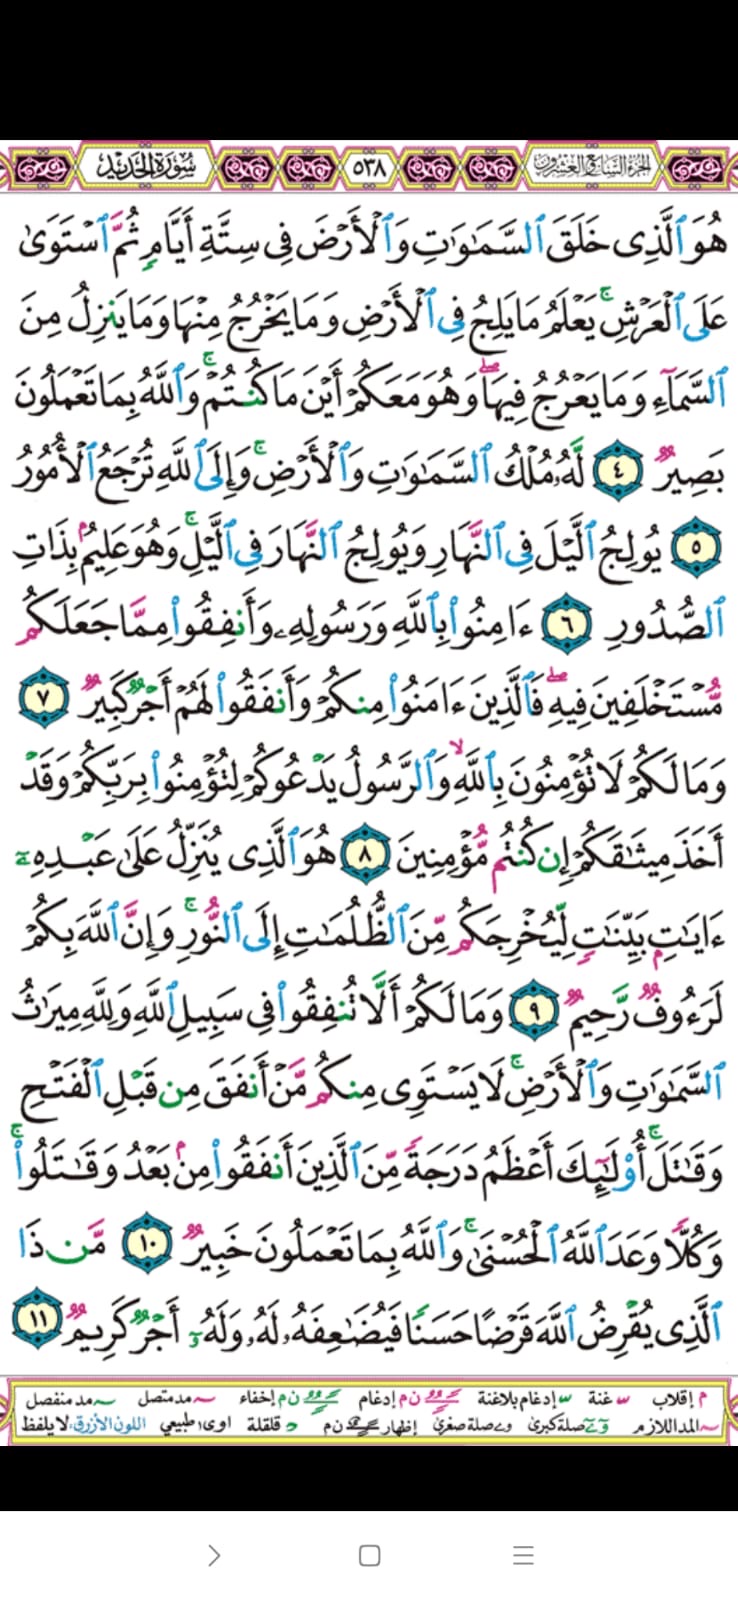 الجزء السابع والعشرون
٥٣٨
سورة الحديد
هُوَ ٱلَّذِى خَلَقَ ٱلسَّمَٰوَٰتِ وَٱلْأَرْضَ فِى سِتَّةِ أَيَّامٍ ثُمَّ ٱسْتَوَىٰ
عَلَى ٱلْعَرْشِ ۚ يَعْلَمُ مَا يَلِجُ فِى ٱلْأَرْضِ وَمَا يَخْرُجُ مِنْهَا وَمَا يَنزِلُ مِنَ
ٱلسَّمَآءِ وَمَا يَعْرُجُ فِيهَا ۖ وَهُوَ مَعَكُمْ أَيْنَ مَا كُنتُمْ ۚ وَٱللَّهُ بِمَا تَعْمَلُونَ
بَصِيرٌ ٤ لَّهُۥ مُلْكُ ٱلسَّمَٰوَٰتِ وَٱلْأَرْضِ ۚ وَإِلَى ٱللَّهِ تُرْجَعُ ٱلْأُمُورُ
٥ يُولِجُ ٱلَّيْلَ فِى ٱلنَّهَارِ وَيُولِجُ ٱلنَّهَارَ فِى ٱلَّيْلِ ۚ وَهُوَ عَلِيمٌۢ بِذَاتِ
ٱلصُّدُورِ ٦ ءَامِنُوا۟ بِٱللَّهِ وَرَسُولِهِۦ وَأَنفِقُوا۟ مِمَّا جَعَلَكُم
مُّسْتَخْلَفِينَ فِيهِ ۖ فَٱلَّذِينَ ءَامَنُوا۟ مِنكُمْ وَأَنفَقُوا۟ لَهُمْ أَجْرٌ كَبِيرٌ ٧
وَمَا لَكُمْ لَا تُؤْمِنُونَ بِٱللَّهِ ۙ وَٱلرَّسُولُ يَدْعُوكُمْ لِتُؤْمِنُوا۟ بِرَبِّكُمْ وَقَدْ
أَخَذَ مِيثَٰقَكُمْ إِن كُنتُم مُّؤْمِنِينَ ٨ هُوَ ٱلَّذِى يُنَزِّلُ عَلَىٰ عَبْدِهِۦٓ
ءَايَٰتٍۭ بَيِّنَٰتٍ لِّيُخْرِجَكُم مِّنَ ٱلظُّلُمَٰتِ إِلَى ٱلنُّورِ ۚ وَإِنَّ ٱللَّهَ بِكُمْ
لَرَءُوفٌ رَّحِيمٌ ٩ وَمَا لَكُمْ أَلَّا تُنفِقُوا۟ فِى سَبِيلِ ٱللَّهِ وَلِلَّهِ مِيرَٰثُ
ٱلسَّمَٰوَٰتِ وَٱلْأَرْضِ ۚ لَا يَسْتَوِى مِنكُم مَّنْ أَنفَقَ مِن قَبْلِ ٱلْفَتْحِ
وَقَٰتَلَ ۚ أُو۟لَٰٓئِكَ أَعْظَمُ دَرَجَةً مِّنَ ٱلَّذِينَ أَنفَقُوا۟ مِنۢ بَعْدُ وَقَٰتَلُوا۟ ۚ
وَكُلًّا وَعَدَ ٱللَّهُ ٱلْحُسْنَىٰ ۚ وَٱللَّهُ بِمَا تَعْمَلُونَ خَبِيرٌ ١٠ مَّن ذَا
ٱلَّذِى يُقْرِضُ ٱللَّهَ قَرْضًا حَسَنًا فَيُضَٰعِفَهُۥ لَهُۥ وَلَهُۥٓ أَجْرٌ كَرِيمٌ ١١
م إقلاب غنة إدغام بلاغنة ن م إدغام ن م إخفاء مد متصل مد منفصل
المد اللازم صلة كبرى صلة صغرى إظهار ن م قلقلة اوى طبيعي اللون الأزرق، لا يلفظ